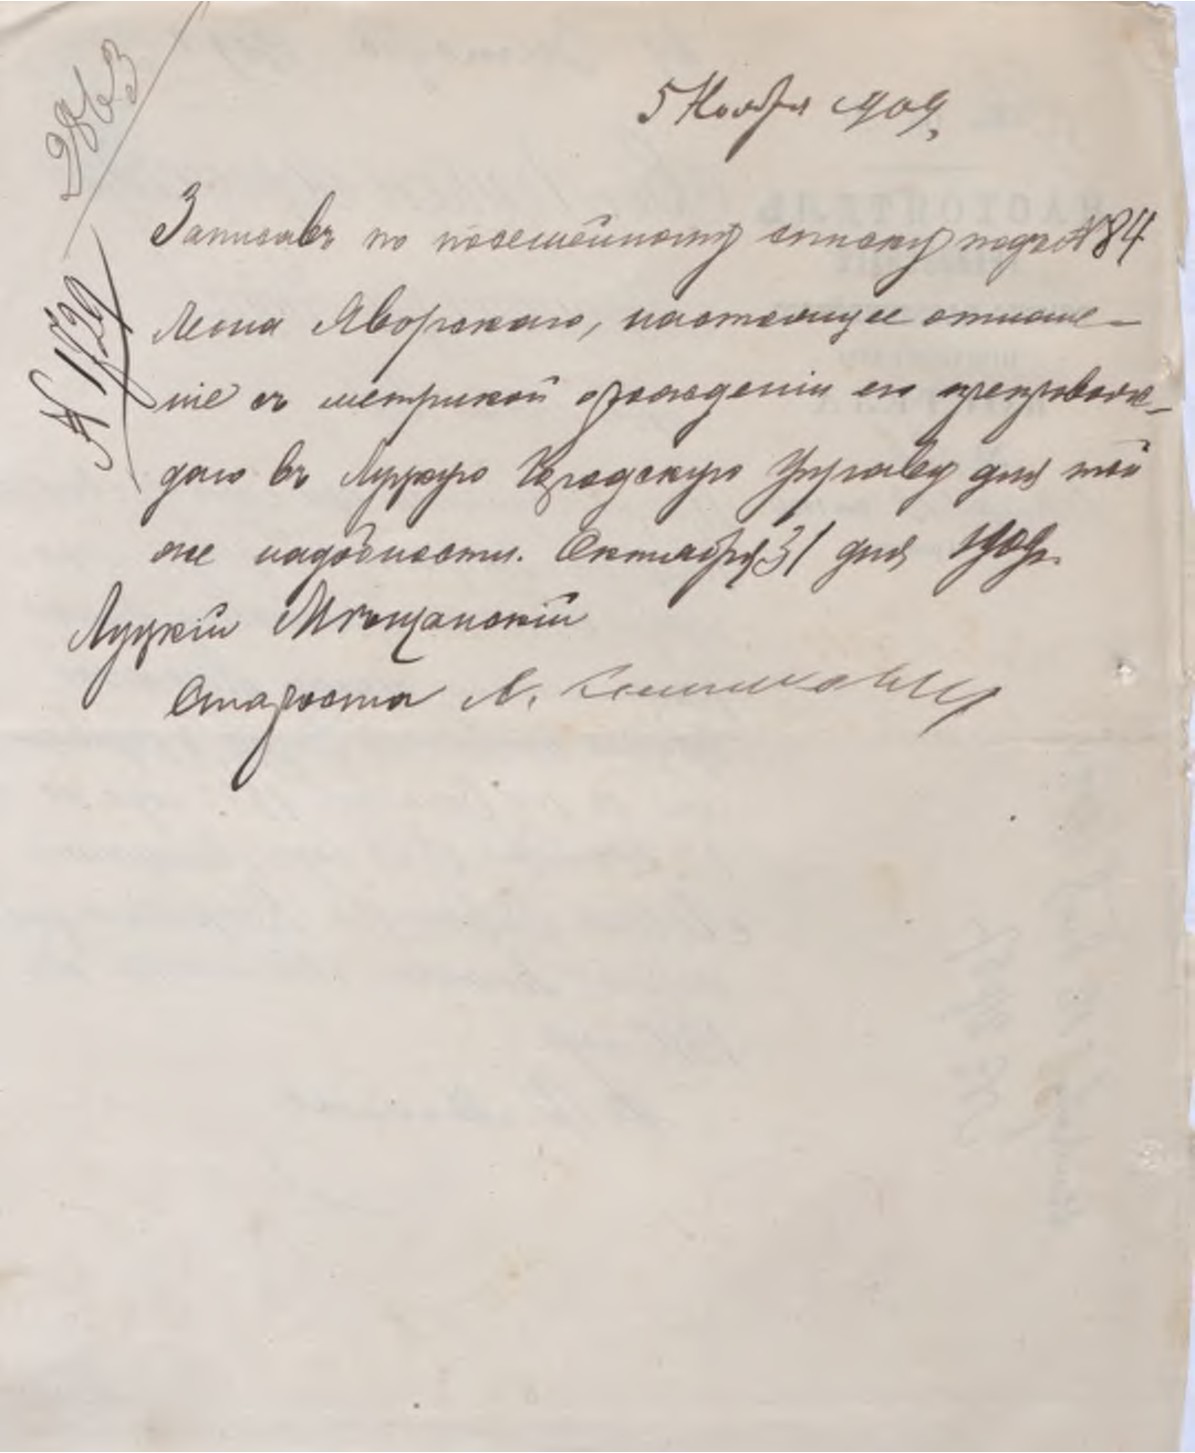 2863
5 Ноября 1909.
№ 1729
Записавъ по посемейному списку подъ № 84
Леона Яворскаго, настоящее отноше-
ніе съ метрикой о рожденіи его препровож-
даю въ Луцкую Городскую Управу для той
же надобности. Октября 31 дня 1909 г.
Луцкій Мѣщанскій
Староста